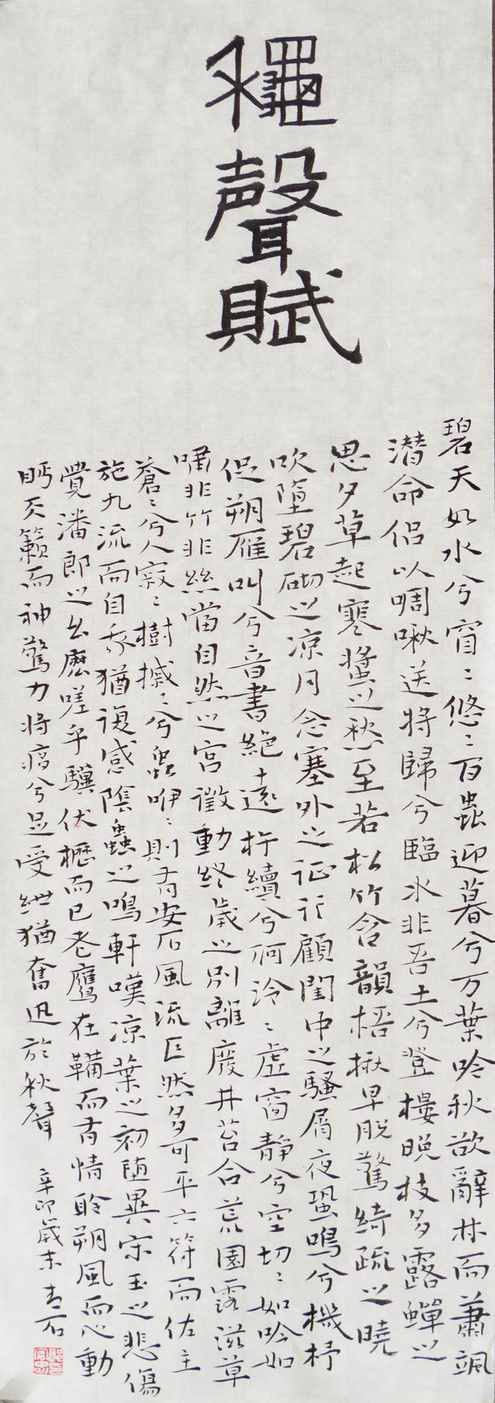 龝聲賦
碧天如水兮窅〻悠〻百蟲迎暮兮万葉吟秋欲辭林而蕭颯
潛命侶以啁啾送將歸兮臨水非吾土兮登樓晚枝多露蟬之
思夕草起寒螿之愁至若松竹含韻梧楸早脫驚綺疏之曉
吹墮碧砌之凉月念塞外之征行顧閨中之騷屑夜蛩鳴兮機杼
促朔雁叫兮音書絕遠杵續兮何泠〻虛窗靜兮空切〻如吟如
嘯非竹非絲當自然之宮徵動終歲之別離廢井苔合荒園露滋草
蒼〻兮人寂〻樹摵〻兮蟲咿〻則有安石風流巨然多可平六符而佐主
施九流而自我猶復感陰蟲之鳴軒嘆凉葉之初隨異宋玉之悲傷
覺潘郎之幺麼嗟乎驥伏櫪而已老鷹在韝而有情聆朔風而心動
眄天籟而神驚力將痑兮足受紲猶奮迅於秋聲 辛卯歲末 青石